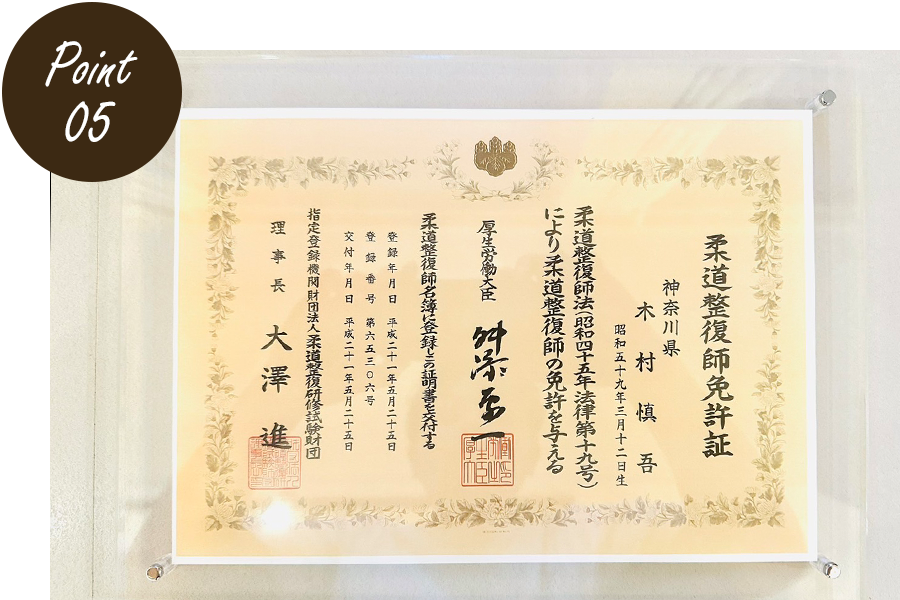 Point
05
柔道整復師免許証
神奈川県
木村慎吾
昭和五十九年三月十二日生
柔道整復師法(昭和四十五年法律第十九号)
により柔道整復師の免許を与える
厚生労働大臣
舛添要一
柔道整復師名簿に登録しこの証明書を交付する
登録年月日 平成二十一年五月二十五日
登録番号 第六五三〇六号
交付年月日 平成二十一年五月二十五日
指定登録機関財団法人柔道整復研修試験財団
理事長 大澤進